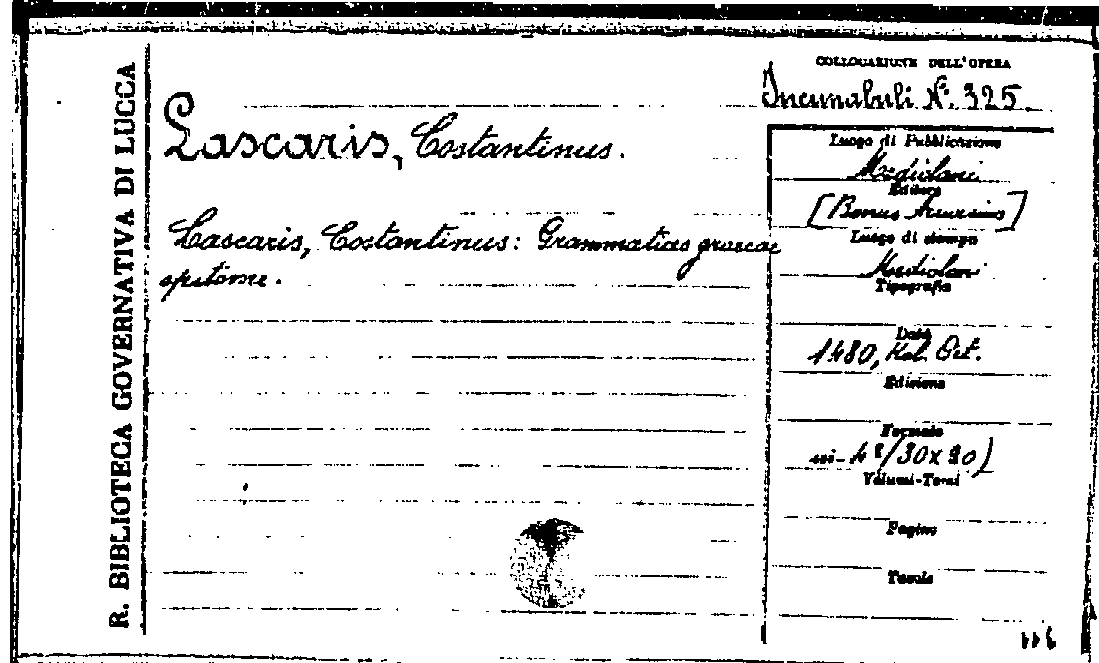 R. BIBLIOTECA GOVERNATIVA DI LUCCA
COLLOCAZIONE DELL'OPERA
Incunabuli N°. 325.
Lascaris, Costantinus.
Lascaris, Costantinus: Grammaticae graecae
epitome.
Luogo di Pubblicazione
Mediolani
Editore
[Bonus Accursius]
Luogo di stampa
Mediolani
Tipografia
Data
1480, Kal. Oct.
Edizione
Formato
in-4°/30x20)
Volumi-Tomi
Pagine
Tavole